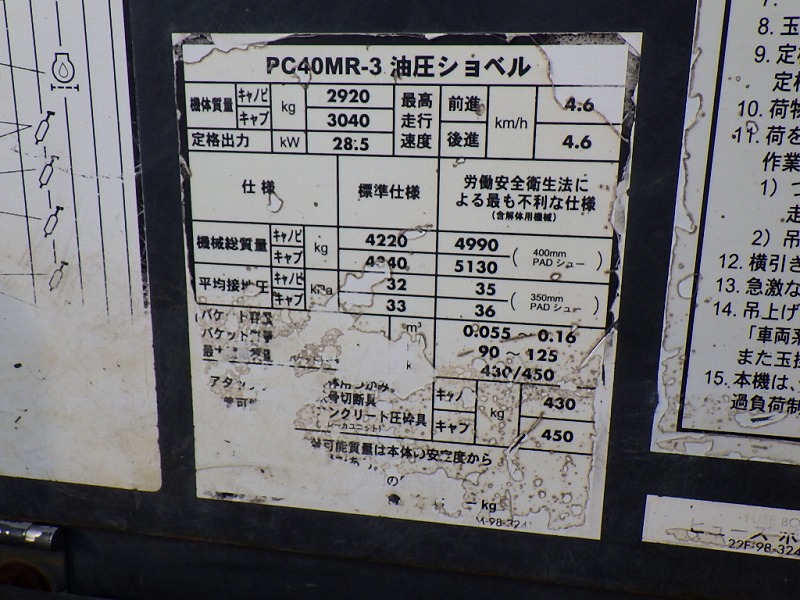 PC40MR-3 油圧ショベル
機体質量 キャノピ kg 2920 最高走行速度 前進 km/h 4.6
キャブ 3040
定格出力 kW 28.5 後進 4.6
仕様 標準仕様 労働安全衛生法に
よる最も不利な仕様
(含解体用機械)
機械総質量 キャノピ kg 4220 4990 (400mm
キャブ 5130 PADシュー)
平均接地圧 キャノピ 32 35 (350mm
キャブ 33 36 PADシュー)
バケット m³ 0.055 ～ 0.16
バケット 90 ～ 125
430/450
アタッ
キャノ kg 430
切断具
ンクリート圧砕具 キャブ 450
可能質量は本体の安定度から
の
kg
8. 玉
9. 定
定
10. 荷物
11. 荷を
作業
1) つ
走
2) 吊
12. 横引き
13. 急激な
14. 吊上げ
「車両系
また玉掛
15. 本機は、
過負荷制
ヒューズボ
22F-98-324